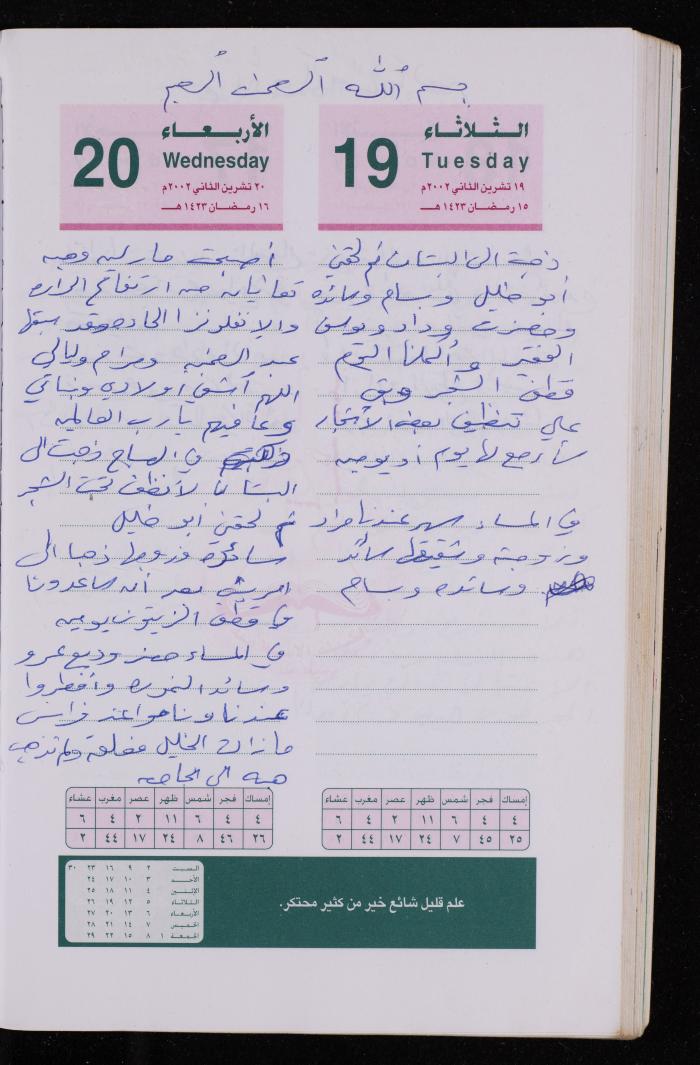 بسم الله الرحمن الرحيم
الثلاثاء
19
Tuesday
١٩ تشرين الثاني ٢٠٠٢م
١٥ رمضان ١٤٢٣ هـ
ذهبت الى البستان ثم لحقني
أبو خليل وبسام وسائده
وحضرت وداد ويوسف
الفقير وأكملنا اليوم
قطف الشجر وبقي
علي تنظيف بعض الأشجار
سأرجع لها يوم أو يومين
في المساء سهر عندنا مراد
وزوجته وشقيقها سائد
وسائده وبسام
إمساك فجر شمس ظهر عصر مغرب عشاء
٤ ٤ ٦ ١١ ٢ ٤ ٦
٢٥ ٤٥ ٧ ٢٤ ١٧ ٤٤ ٢
الأربعاء
20
Wednesday
٢٠ تشرين الثاني ٢٠٠٢م
١٦ رمضان ١٤٢٣ هـ
أصبحت مارلين وهبه
تعانيان من ارتفاع الحراره
والانفلونزا الحاده وقد سبقها
عبد الرحمن ومرام وليالي
اللهم أشفي أولادي وبناتي
وعافيهم يارب العالمين
في الصباح ذهبت الى
البستان لأنظف تحت الشجر
ثم لحقني أبو خليل
سائده وزوجها ذهبا الى
بعد أن ساعدونا
في قطف الزيتون يومين
في المساء حضر وديع عمرو
وسائد النموره وأفطروا
عندنا وناموا عند فراس
مازالت الخليل مغلقة ولم تذهب
هبه الى الجامعه
إمساك فجر شمس ظهر عصر مغرب عشاء
٤ ٤ ٦ ١١ ٢ ٤ ٦
٢٦ ٤٦ ٨ ٢٤ ١٧ ٤٤ ٢
علم قليل شائع خير من كثير محتكر.
السبت ٢ ٩ ١٦ ٢٣ ٣٠
الأحد ٣ ١٠ ١٧ ٢٤
الإثنين ٤ ١١ ١٨ ٢٥
الثلاثاء ٥ ١٢ ١٩ ٢٦
الأربعاء ٦ ١٣ ٢٠ ٢٧
الخميس ٧ ١٤ ٢١ ٢٨
الجمعة ١ ٨ ١٥ ٢٢ ٢٩